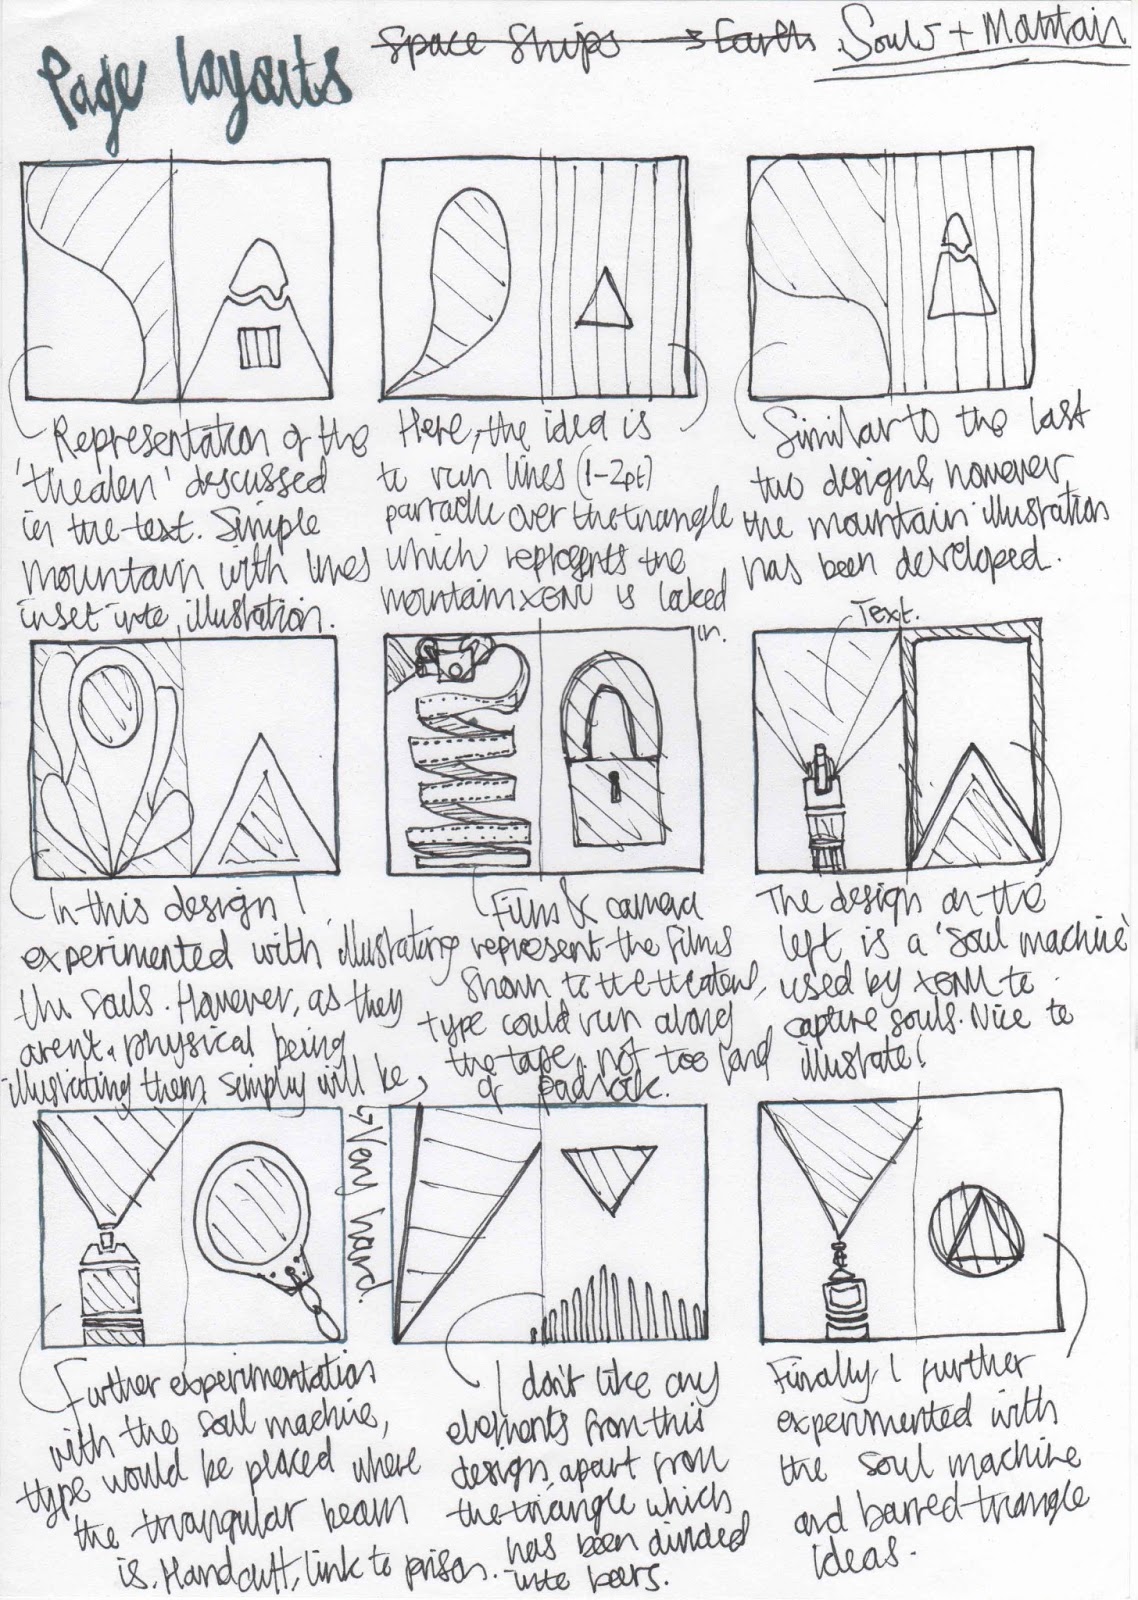 Page layouts
Space Ships → Earth
Souls + Mountain
Representation of the
'theaten' discussed
in the text. Simple
mountain with lines
inset into illustration.
Here, the idea is
to run lines (1-2pt)
over the triangle
which represents the
mountain XENU is locked
in.
Similar to the last
two designs, however,
the mountain illustration
has been developed.
Text.
In this design I
experimented with illustrating
the souls. However, as they
arent a physical being
illustrating them simply will be
→ Very hard.
Films & camera
represent the films
shown to the
type could run along
the tape, not too fond
of padlock.
The design on the
left is a 'soul machine'
used by XENU to
capture souls. Nice to
illustrate!
Further experimentation
with the soul machine,
type would be placed where
the triangular beam
is. Handcuff, link to prison.
I don't like any
elements from this
design, apart from
the triangle which
has been divided
into bars.
Finally, I further
experimented with
the soul machine
and barred triangle
ideas.